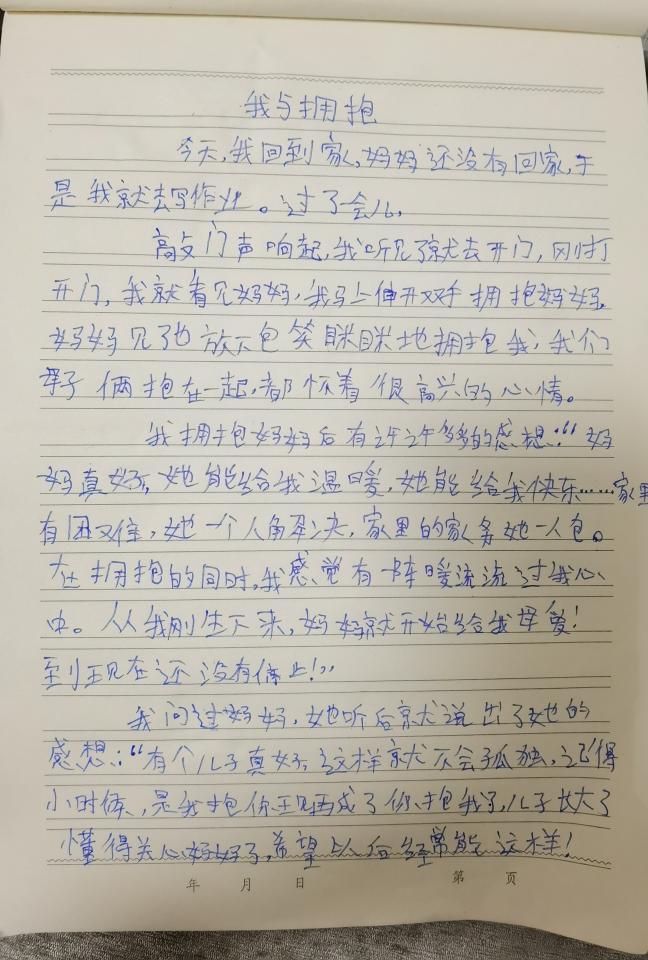 我与拥抱
今天,我回到家,妈妈还没有回家,于
是我就去写作业。过了会儿,
敲门声响起,我听见了就去开门,刚打
开门,我就看见妈妈,我马上伸开双手拥抱妈妈,
妈妈见了也放下包笑眯眯地拥抱我,我们
母子俩抱在一起,都怀着很高兴的心情。
我拥抱妈妈后有许许多多的感想:“妈
妈真好,她能给我温暖,她能给我快乐……家里
有困难,她一个人解决,家里的家务她一人包。
在拥抱的同时,我感觉有一阵暖流流过我心
中。从我刚生下来,妈妈就开始给我母爱!
到现在还没有停止!”
我问过妈妈,她听后就说出了她的
感想:“有个儿子真好,这样就不会孤独,记得
小时候,是我抱你现再成了你抱我了,儿子长大了
懂得关心妈妈了,希望以后经常能这样!
年 月 日 第 页